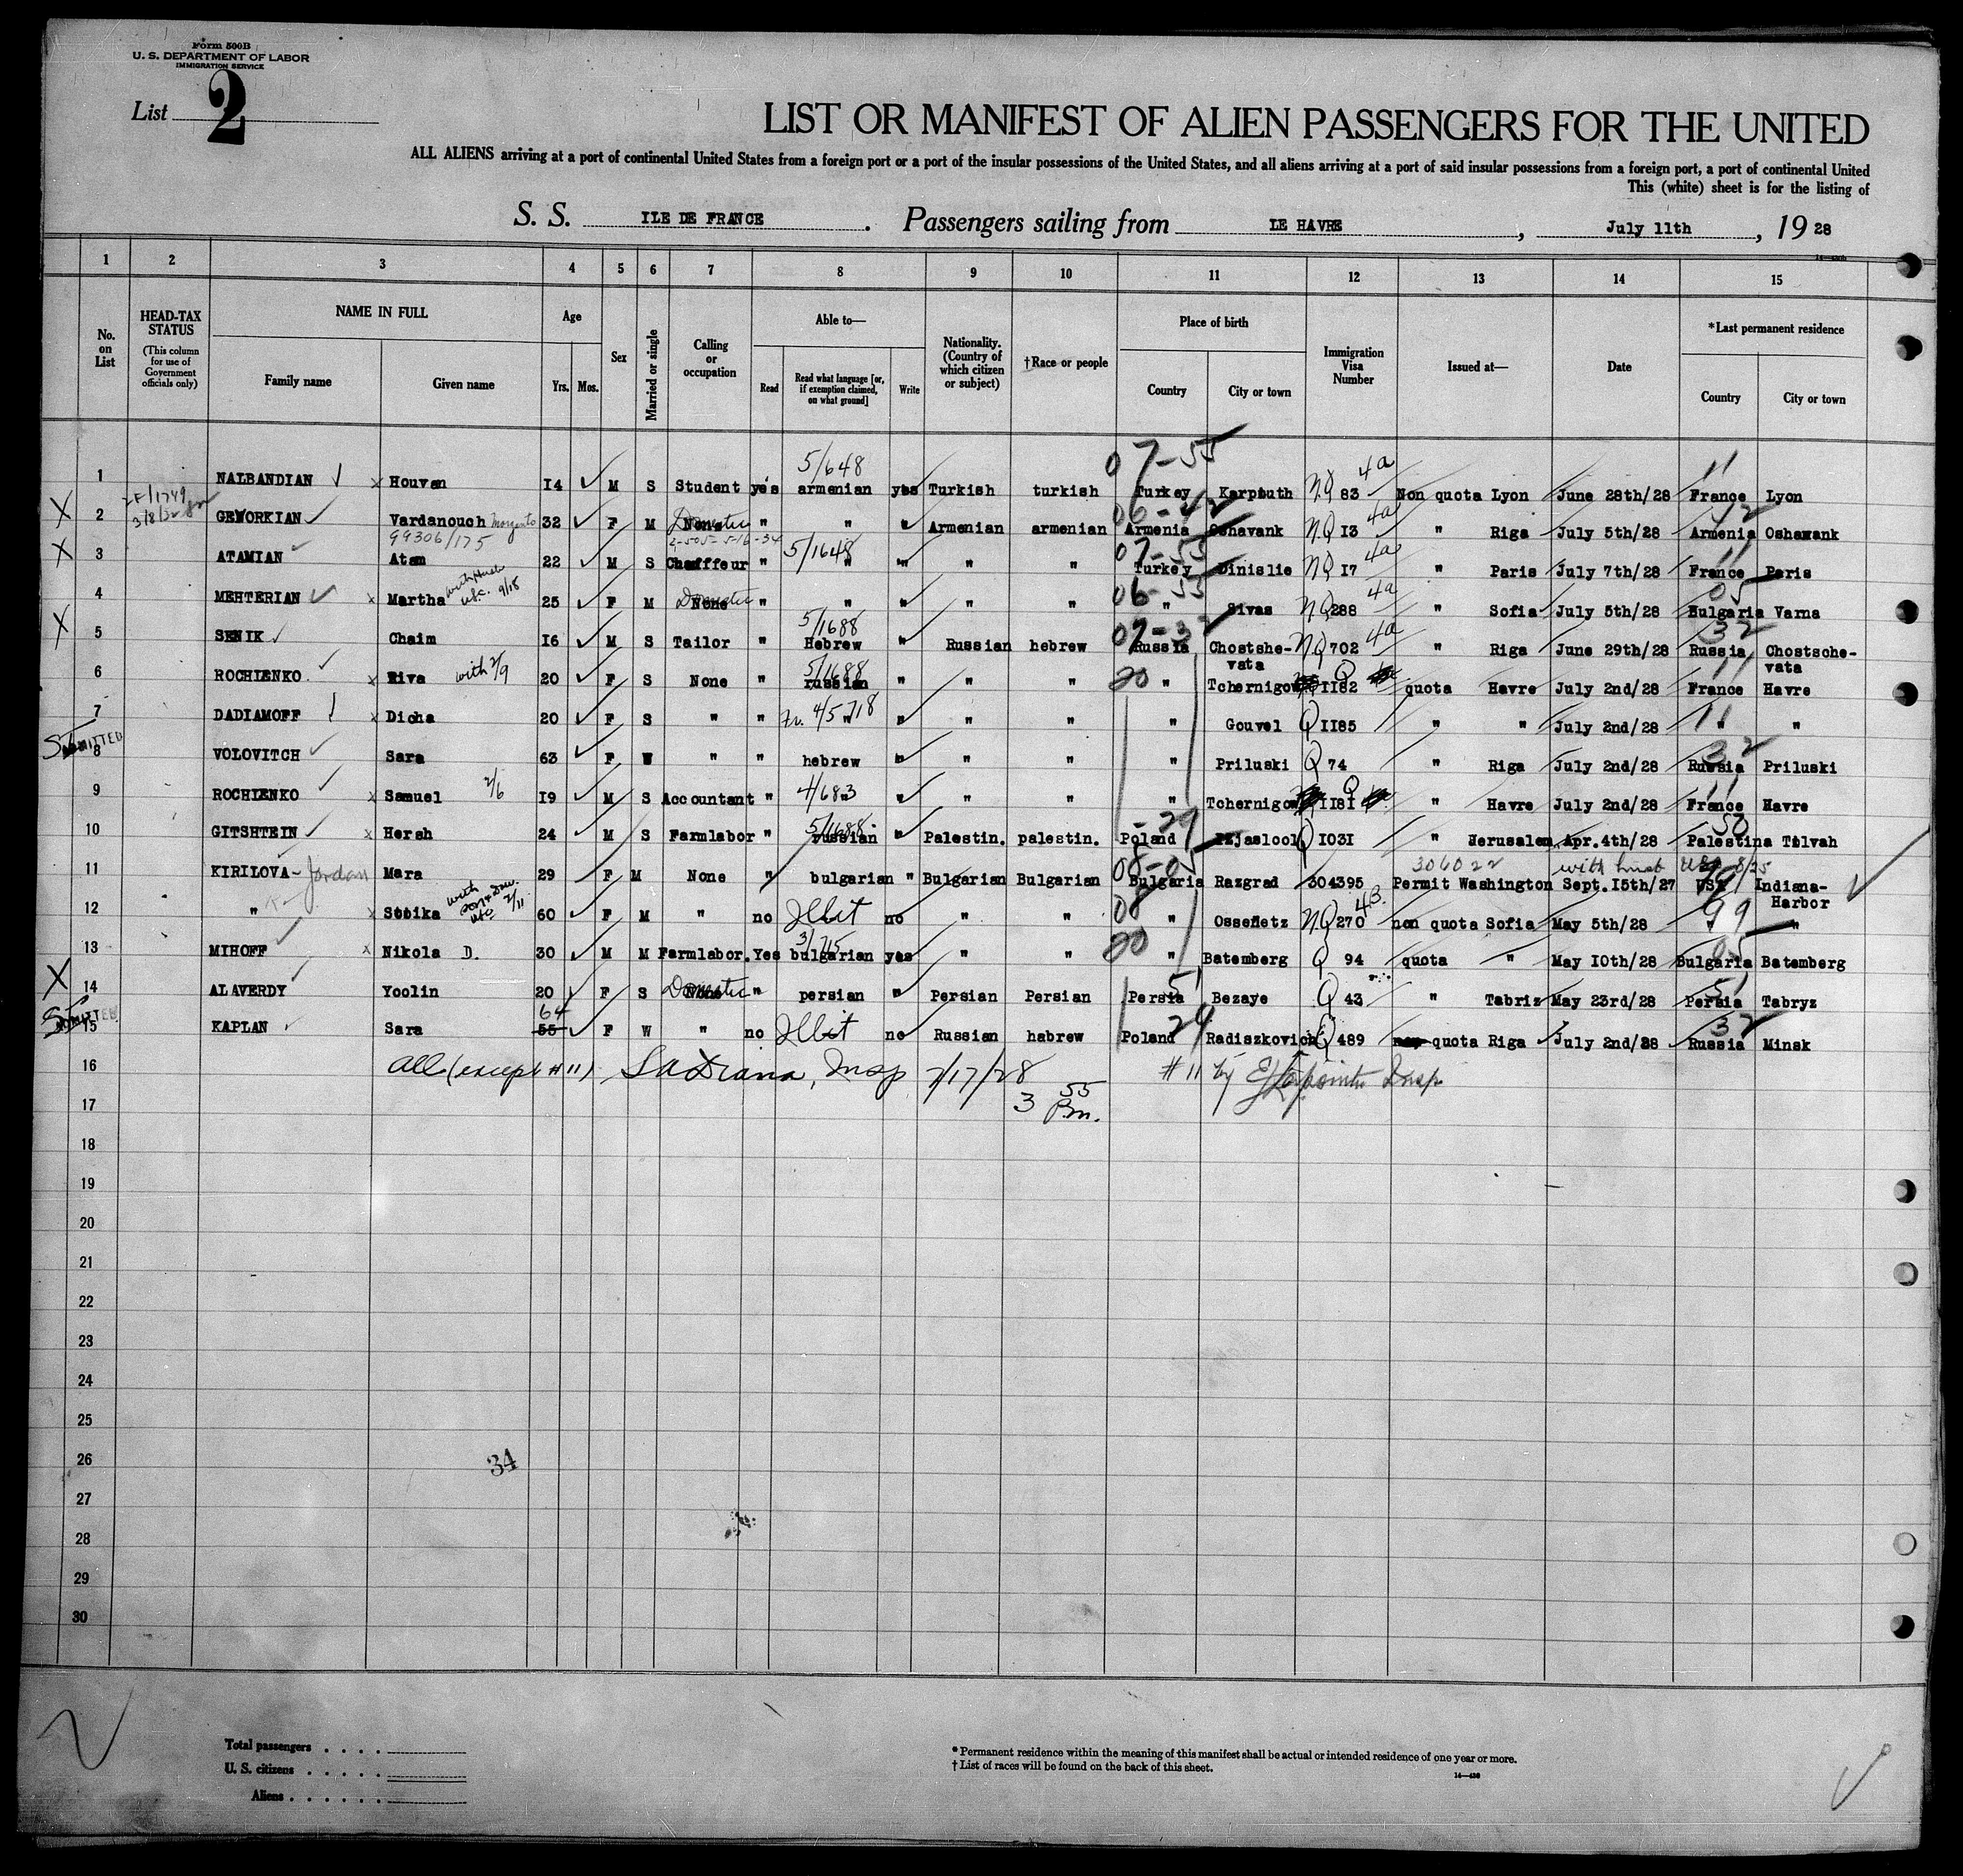 Form 500B
U. S. DEPARTMENT OF LABOR
IMMIGRATION SERVICE
List 2
LIST OR MANIFEST OF ALIEN PASSENGERS FOR THE UNITED
ALL ALIENS arriving at a port of continental United States from a foreign port or a port of the insular possessions of the United States, and all aliens arriving at a port of said insular possessions from a foreign port, a port of continental United
This (white) sheet is for the listing of
S. S. ILE DE FRANCE . Passengers sailing from LE HAVRE , July 11th , 19 28
1 2 3 4 5 6 7 8 9 10 11 12 13 14 15
No. on List
HEAD-TAX STATUS (This column for use of Government officials only)
NAME IN FULL Family name Given name
Age Yrs. Mos.
Sex
Married or single
Calling or occupation
Able to— Read Read what language [or, if exemption claimed, on what ground] Write
Nationality. (Country of which citizen or subject)
†Race or people
Place of birth Country City or town
Immigration Visa Number
Issued at—
Date
*Last permanent residence Country City or town
5/648 07-55 4a 11
1 NALBANDIAN Houvan 14 M S Student yes armenian yes Turkish turkish Turkey Karpouth NQ 83 Non quota Lyon June 28th/28 France Lyon
X 2 GEWORKIAN Vardanouch 32 F M None Domestic " " " Armenian armenian Armenia Oshavank NQ 13 4a " Riga July 5th/28 Armenia Oshawank
99306/175
X 3 ATAMIAN Atam 22 M S Chauffeur " 5/1648 " " " " 07-55 Turkey Dinislie NQ 17 4a " Paris July 7th/28 France Paris
4 MEHTERIAN Martha 25 F M None Domestic " " " " " 06-55 " Sivas NQ 288 4a " Sofia July 5th/28 Bulgaria Varna
X 5 SENIK Chaim 16 M S Tailor " 5/1688 Hebrew " Russian hebrew Russia Chostshe- NQ 702 4a " Riga June 29th/28 Russia Chostsche-
vata vata
6 ROCHIENKO Riva with 2/9 20 F S None " 5/1688 russian " " " 20 " Tchernigow Q 1182 quota Havre July 2nd/28 France Havre
7 DADIAMOFF Dicha 20 F S " " Fr. 4/5718 " " " " " Gouvel Q 1185 " " July 2nd/28 " "
ADMITTED 8 VOLOVITCH Sara 63 F W " " hebrew " " " " Priluski Q 74 " Riga July 2nd/28 Russia Priluski
9 ROCHIENKO Samuel 2/6 19 M S Accountant " 4/683 " " " " " Tchernigow Q 1181 " Havre July 2nd/28 France Havre
10 GITSHTEIN Hersh 24 M S Farmlabor " 5/1688 russian " Palestin. palestin. Poland Q 1031 " Jerusalem Apr. 4th/28 Palestina Tilvah
306022
11 KIRILOVA - Jordan Mara 29 F M None " bulgarian " Bulgarian Bulgarian Bulgaria Razgrad 304395 Permit Washington Sept. 15th/27 USA Indiana-
Harbor
12 " Stoika 60 F M " no Illit no " " 08 " Ossenetz NQ 270 4B. non quota Sofia May 5th/28 99 "
13 MIHOFF Nikola D. 30 M M Farmlabor. Yes 3/715 bulgarian yes " " 20 " Batemberg Q 94 quota " May 10th/28 Bulgaria Batemberg
X 14 ALAVERDY Yoolin 20 F S None Domestic " persian " Persian Persian Persia Bezaye Q 43 " Tabriz May 23rd/28 Persia Tabryz
ADMITTED 15 KAPLAN Sara 55 64 F W " no Illit no Russian hebrew Poland Radiszkovich Q 489 non quota Riga July 2nd/28 Russia Minsk
16 all (except #11) Insp 7/17/28 #11 by Insp.
17 3 55 P.m.
18
19
20
21
22
23
24
25
26
34
27
28
29
30
Total passengers . . . .
U. S. citizens . . . . .
Aliens . . . . . .
* Permanent residence within the meaning of this manifest shall be actual or intended residence of one year or more.
† List of races will be found on the back of this sheet.